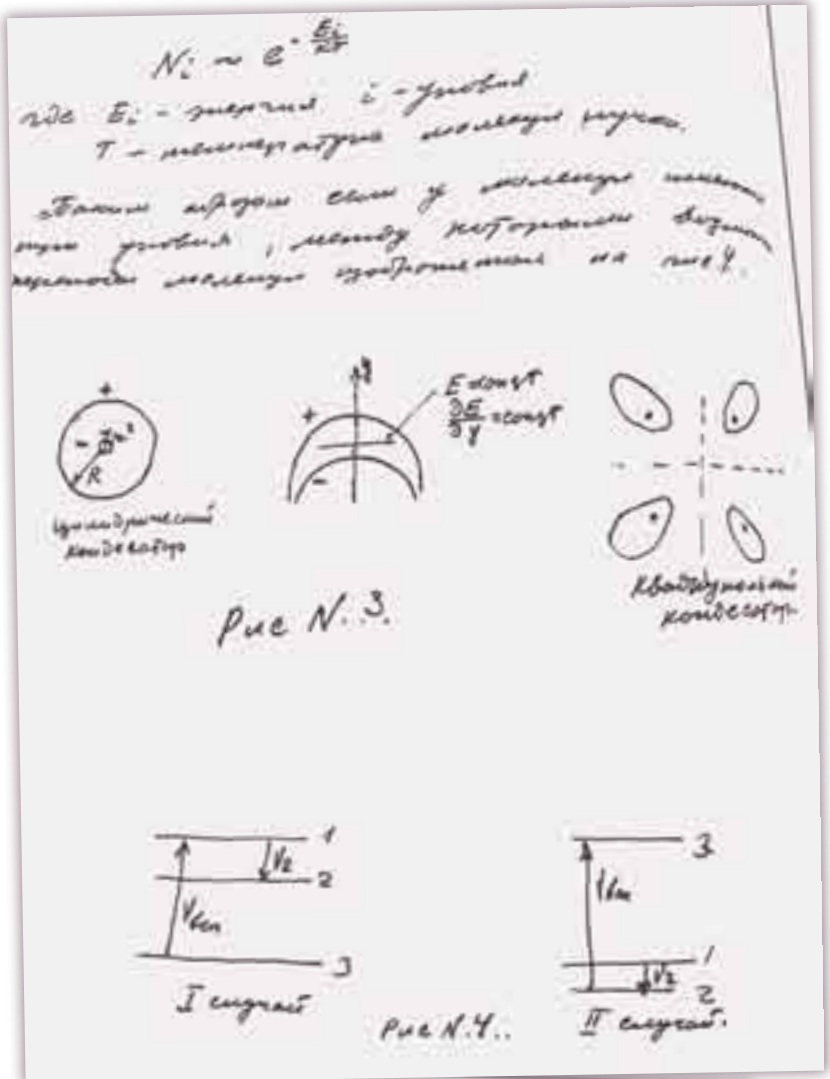 Ni ~ e^-Ei/кТ
где Ei - энергия i - уровня
T - температура молекул пучка.
Таким образом если у молекул
уровня, между которыми
молекул изображенная на рис 4.
+
-
R
Цилиндрический
конденсатор
y
+
-
E = const
∂E/∂y = const
Квадрупольный
конденсатор
Рис N. 3.
1
ν2
2
νвсп
3
I случай
3
νвсп
1
ν2
2
II случай.
Рис N. 4..